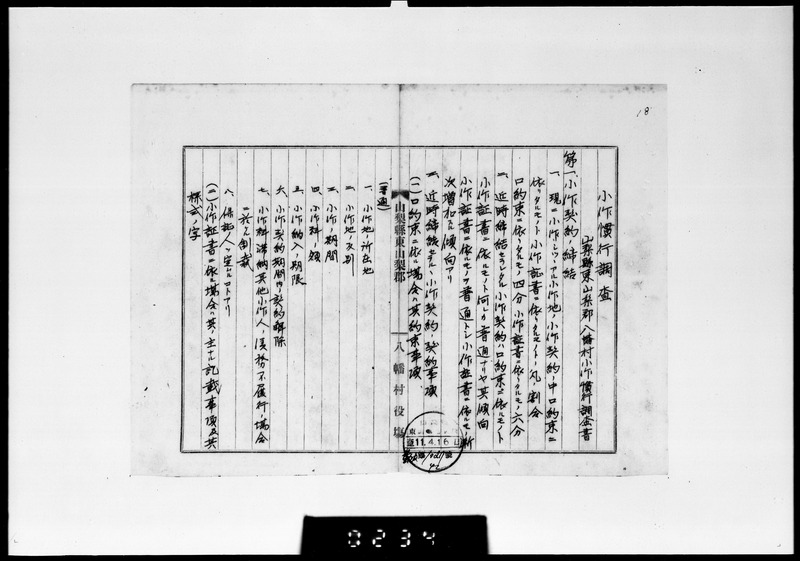 18
小作慣行調査
山梨縣東山梨郡八幡村小作慣行調査書
第一、小作契約ノ締結
一、現ニ小作シツヽアル小作地ノ小作契約ノ中口約束ニ
依リタルモノト小作証書ニ依リタルモノトノ凡ソ割合
口約束ニ依リタルモノ四分小作証書ニ依リタルモノ六分
二、近時締結セラレタル小作契約ハ口約束ニ依ルモノト
小作証書ニ依ルモノト何レカ普通ナリヤ其傾向
小作証書ニ依ルモノヲ普通トシ小作証書ニ依ルモノ漸
次増加スル傾向アリ
三、近時締結セラルヽ小作契約ノ契約事項
(一)口約束ニ依ル場合ハ其約束事項
山梨縣東山梨郡
八幡村役場
11.4.16
(普通)
一、小作地ノ所在地
二、小作地ノ反別
三、小作ノ期間
四、小作料ノ額
五、小作納入ノ期限
六、小作契約期間内ノ契約解除
七、小作料滞納其他小作人ノ債務不履行ノ場合
ニ於ル制裁
八、保証人ヲ定ムルコトアリ
(二)小作証書ニ依ル場合ハ其ノ主ナル記載事項及其
様式ノ字
0234